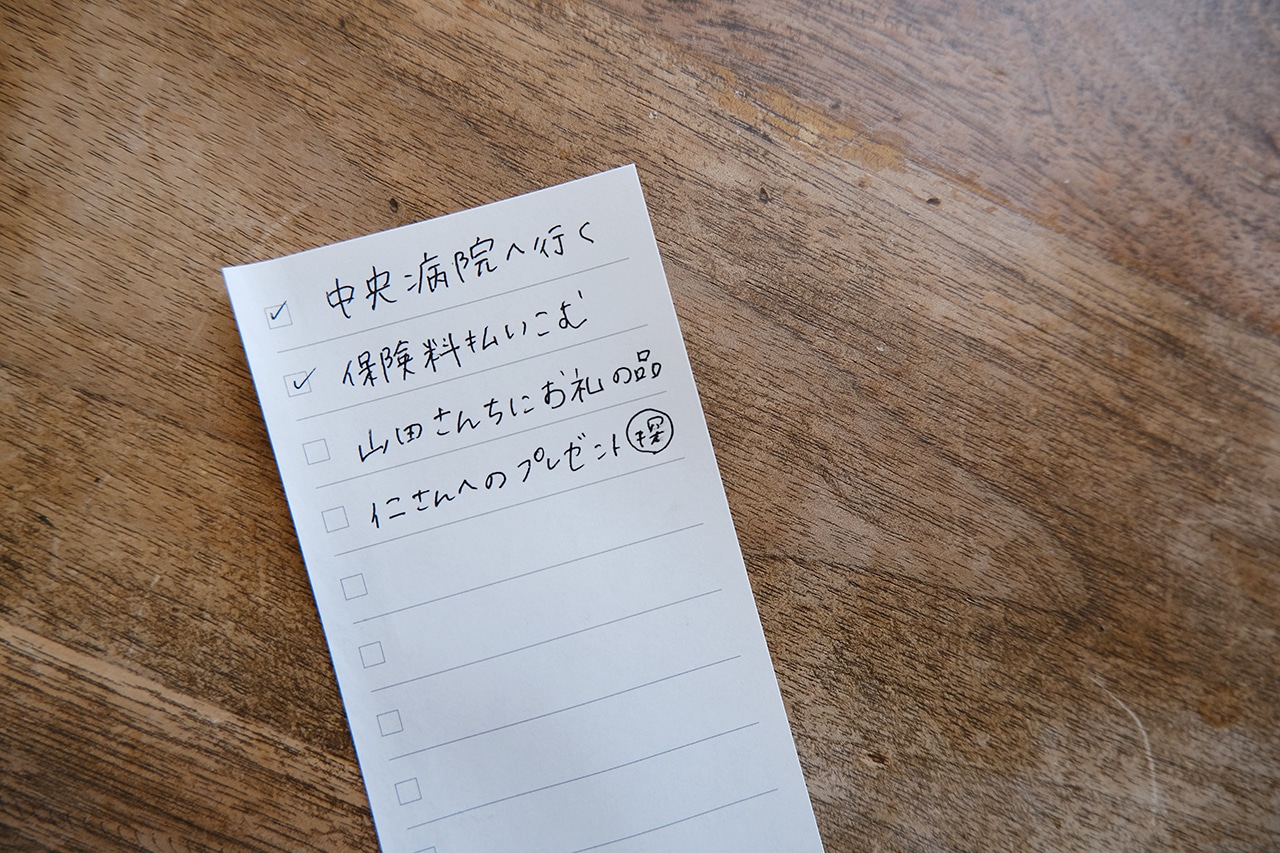 中央病院へ行く
保険料払いこむ
山田さんちにお礼の品
仁さんへのプレゼント探